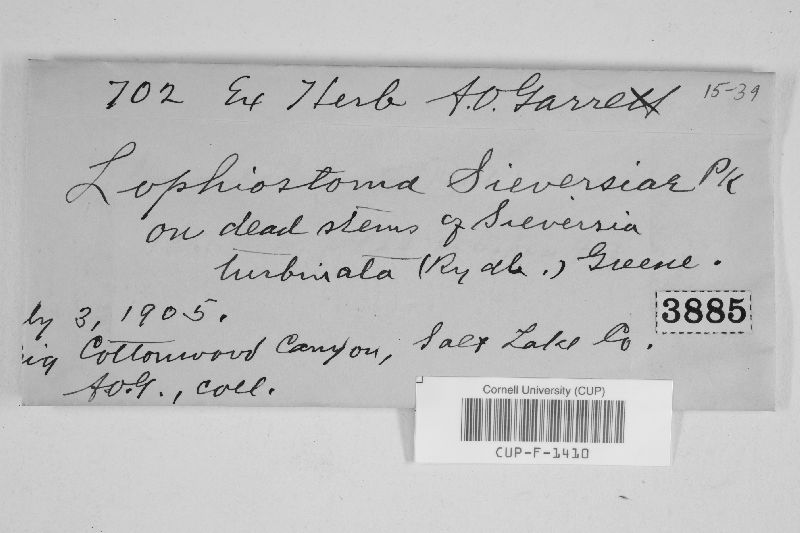 702 Ex Herb A.O. Garrett 15-39
Lophiostoma Sieversiae Pk
on dead stems of Sieversia
turbinata (Rydb.) Greene.
ly 3, 1905.
3885
ig Cottonwood Canyon, Salt Lake Co.
A.O.G., coll.
Cornell University (CUP)
CUP-F-1410